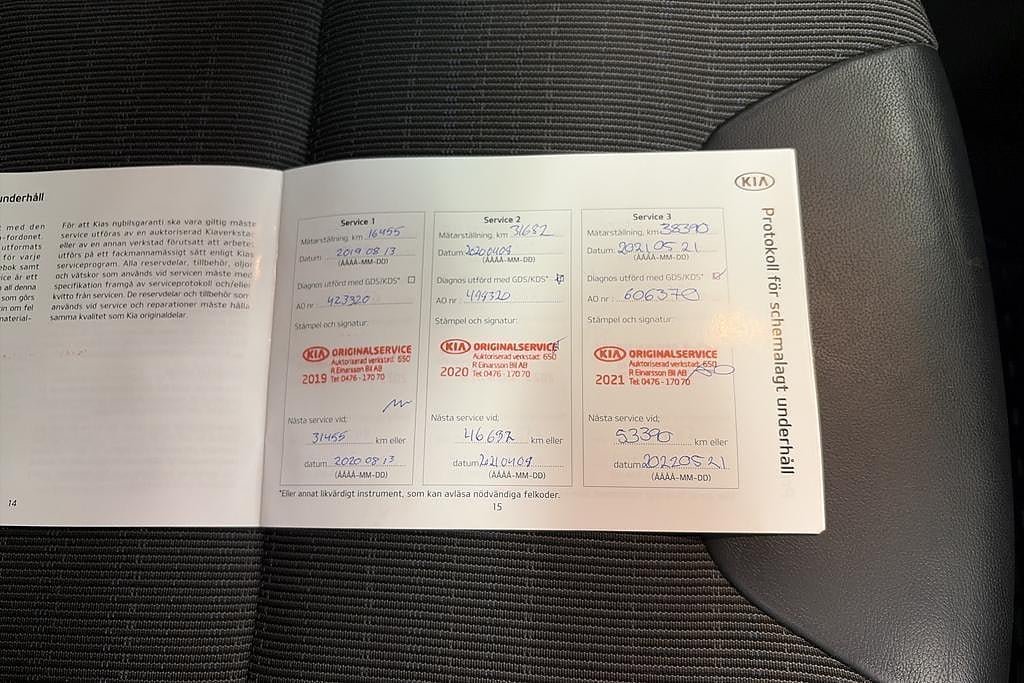 underhåll
t med den
-fordonet.
utformats
för varje
ebok samt
ice är ett
all denna
som görs
in om fel
material-
För att Kias nybilsgaranti ska vara giltig måste
service utföras av en auktoriserad Kiaverkstad
eller av en annan verkstad förutsatt att arbetet
utförs på ett fackmannamässigt sätt enligt Kias
serviceprogram. Alla reservdelar, tillbehör, oljor
och vätskor som används vid servicen måste med
specifikation framgå av serviceprotokoll och/eller
kvitto från servicen. De reservdelar och tillbehör som
används vid service och reparationer måste hålla
samma kvalitet som Kia originaldelar.
14
KIA
Protokoll för schemalagt underhåll
Service 1
Mätarställning, km 16455
Datum: 2019 08 13
(ÅÅÅÅ-MM-DD)
Diagnos utförd med GDS/KDS*
AO nr : 423320
Stämpel och signatur:
KIA ORIGINALSERVICE
Auktoriserad verkstad: 650
R Einarsson Bil AB
2019 Tel: 0476 - 170 70
Nästa service vid;
31455 km eller
datum 2020 08 13
(ÅÅÅÅ-MM-DD)
Service 2
Mätarställning, km 31682
Datum: 20200408
(ÅÅÅÅ-MM-DD)
Diagnos utförd med GDS/KDS*
AO nr : 499320
Stämpel och signatur:
KIA ORIGINALSERVICE
Auktoriserad verkstad: 650
R Einarsson Bil AB
2020 Tel: 0476 - 170 70
Nästa service vid;
46682 km eller
datum
(ÅÅÅÅ-MM-DD)
Service 3
Mätarställning, km 38390
Datum: 2021 05 21
(ÅÅÅÅ-MM-DD)
Diagnos utförd med GDS/KDS*
AO nr : 606370
Stämpel och signatur:
KIA ORIGINALSERVICE
Auktoriserad verkstad: 650
R Einarsson Bil AB
2021 Tel: 0476 - 170 70
Nästa service vid;
53390 km eller
datum 20220521
(ÅÅÅÅ-MM-DD)
*Eller annat likvärdigt instrument, som kan avläsa nödvändiga felkoder.
15